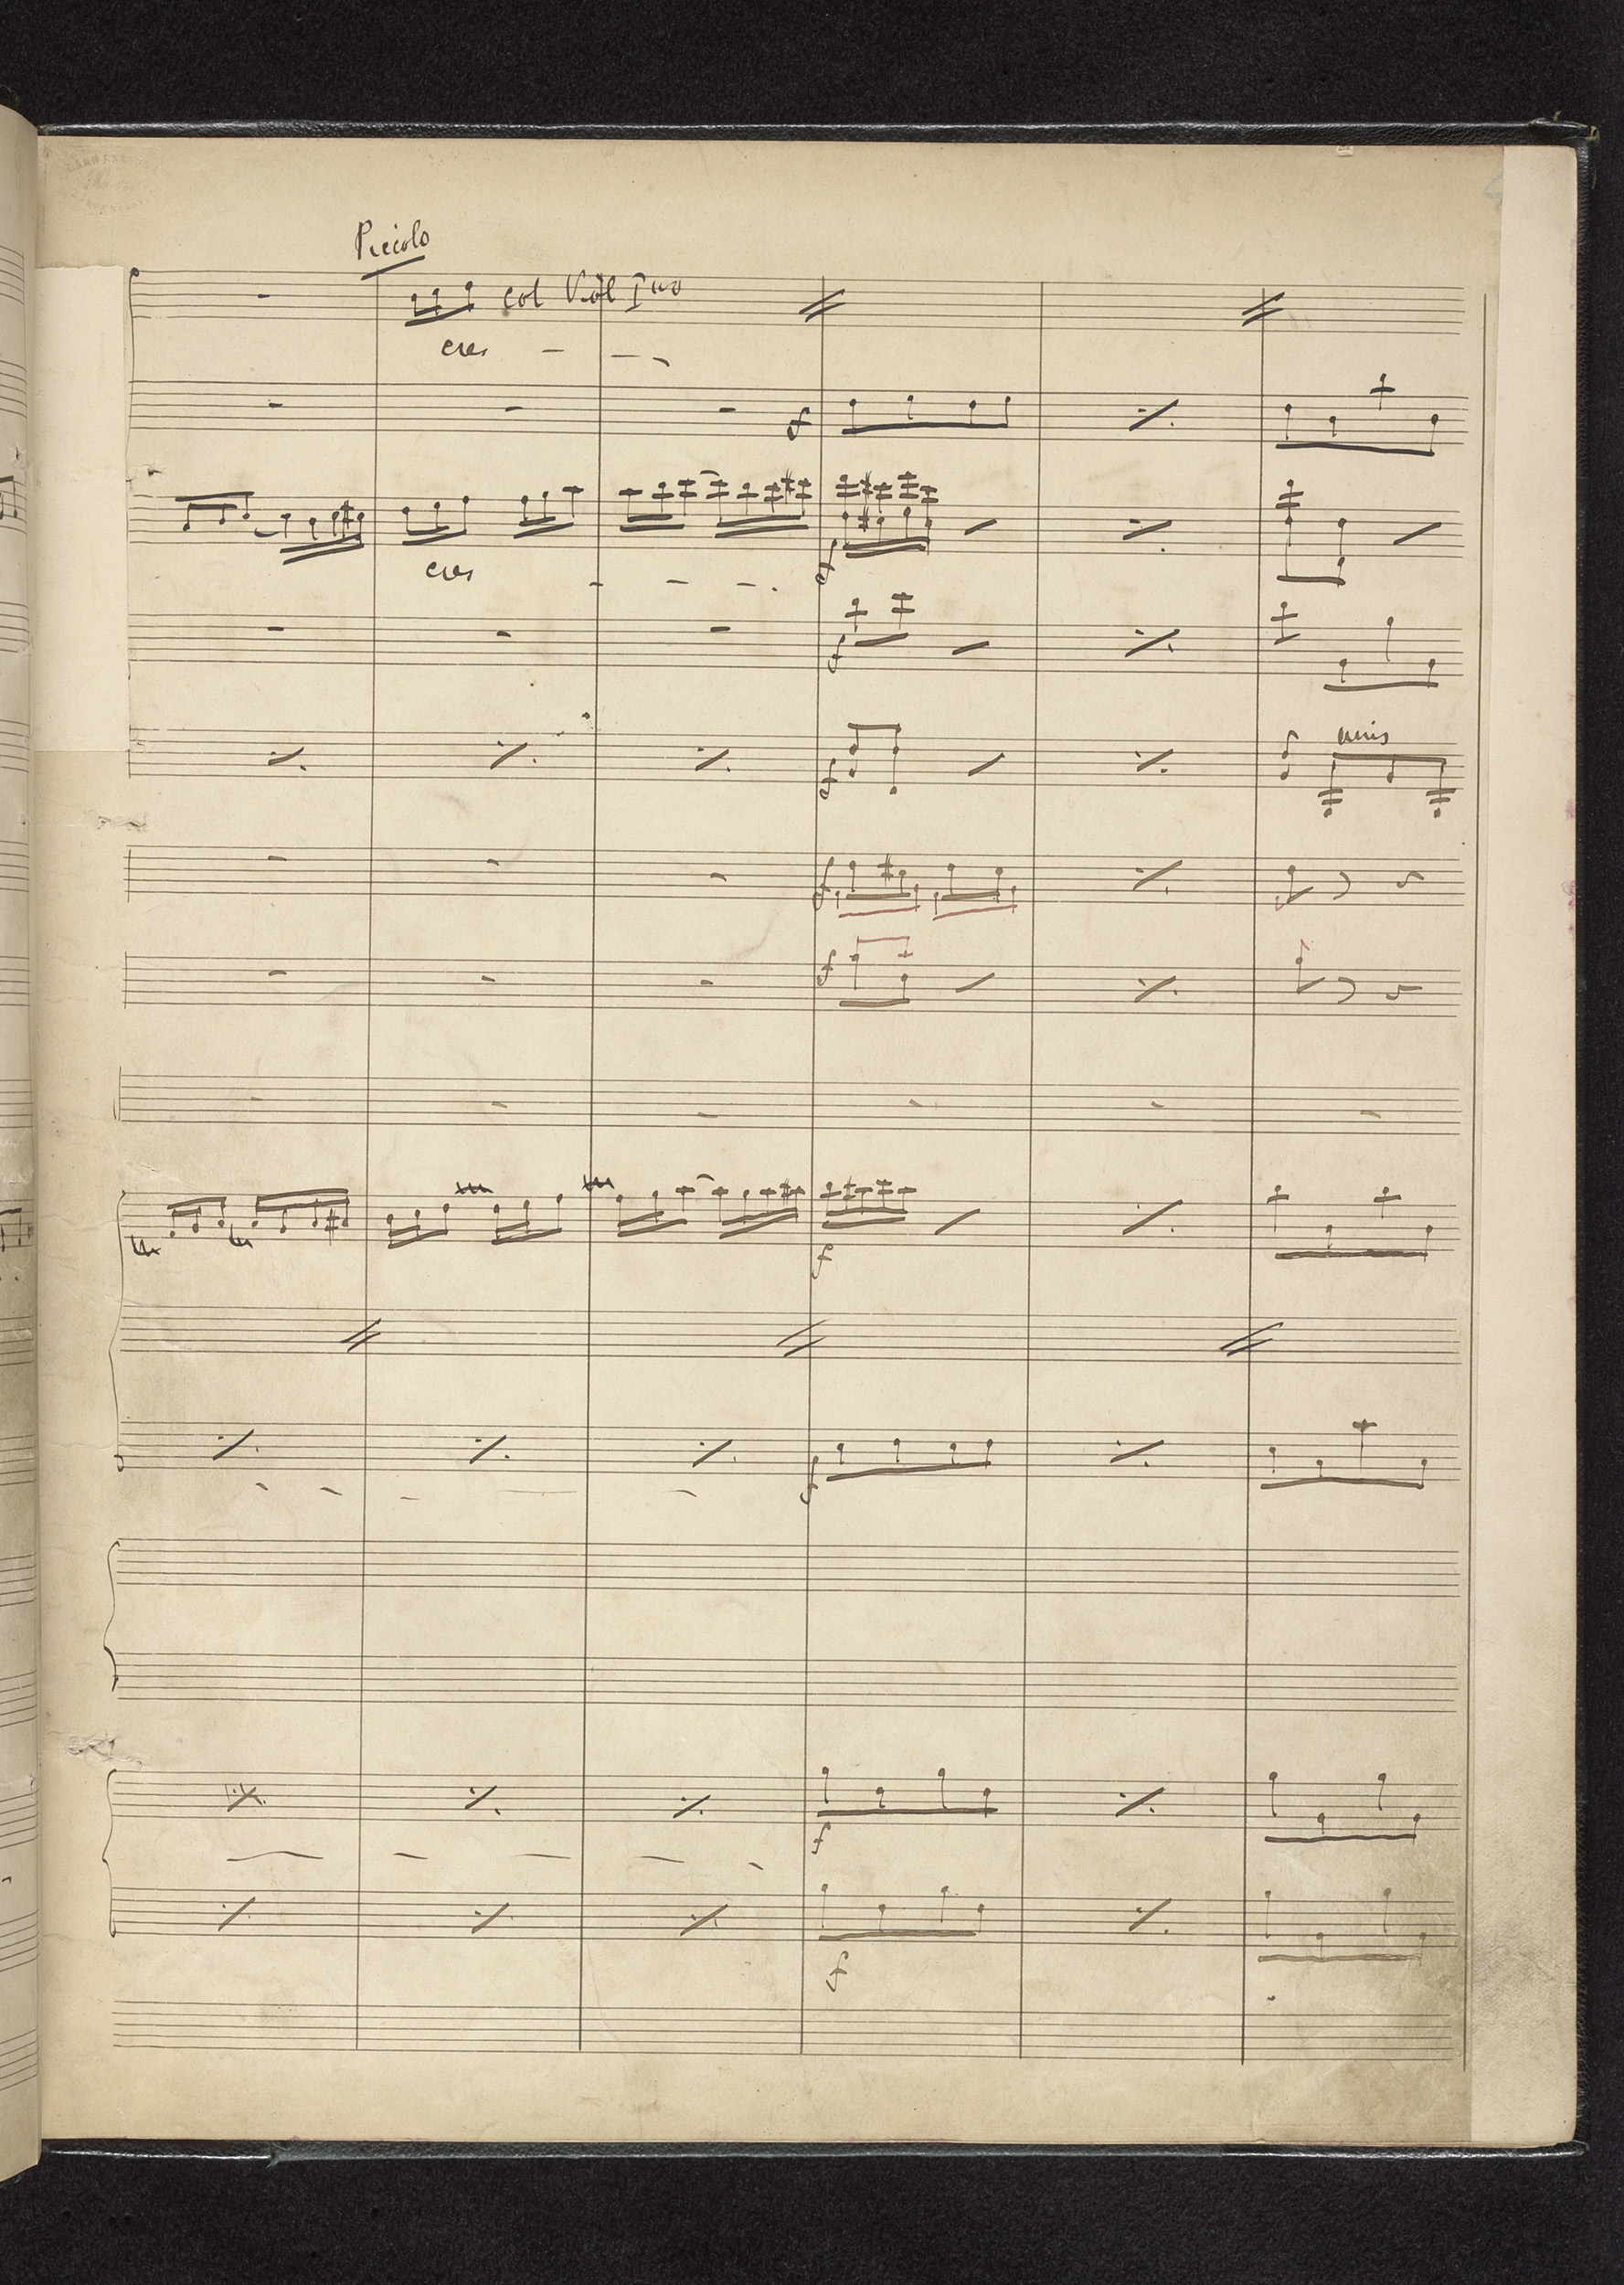 Piccolo
col Viol Imo
cres
f
cres
f
f
unis
f
f
f
f
f
f
f